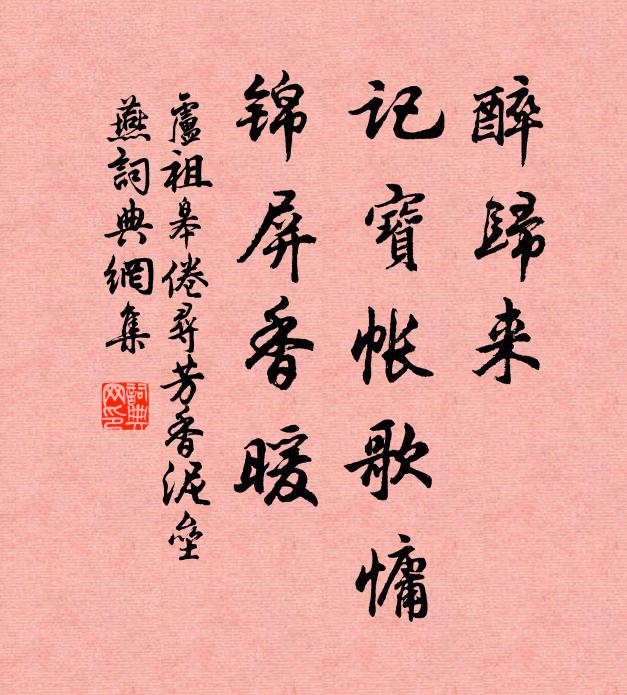 醉歸来
記寶帐歌慵
锦屏香暖
盧祖皋倦尋芳香泥壘
燕詞典網集
詞典
网印